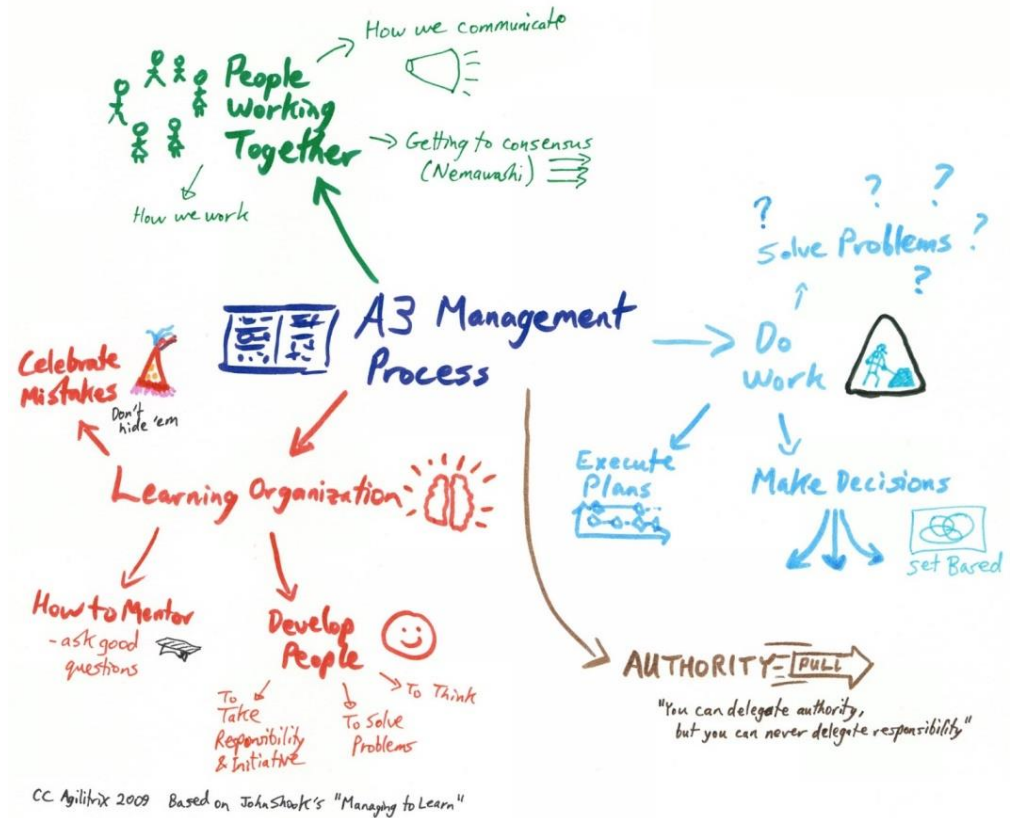 How we communicate
People
Working
Together
Getting to consensus
(Nemawashi)
How we work
A3 Management
Process
? ? ? ? ?
Solve Problems
Do
Work
Execute
Plans
Make Decisions
Set Based
Celebrate
Mistakes
Don't
hide 'em
Learning Organization
How to Mentor
- ask good
questions
Develop
People
To
Take
Responsibility
& Initiative
To Solve
Problems
To Think
AUTHORITY
PULL
"You can delegate authority,
but you can never delegate responsibility"
CC Agilitrix 2009 Based on John Shook's "Managing to Learn"